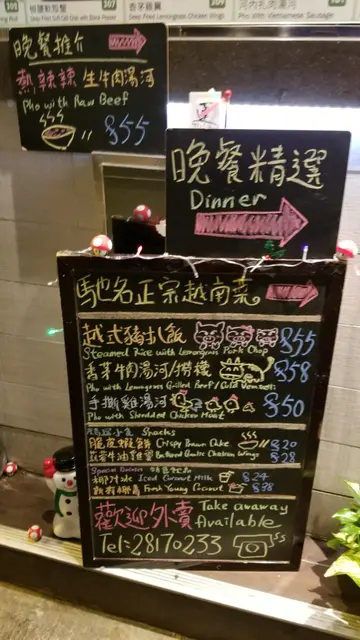 301
Deep Fried Soft Crab
香茅雞翼
Deep Fried Lemongrass Chicken Wings
307
309
Pho with Vietnamese Sausage
晚餐推介
熱辣辣 生牛肉湯河
Pho with Raw Beef
$55
晚餐精選
Dinner
馳名正宗越南菜
越式豬扒飯 $55
Steamed Rice with Lemongrass Pork Chop
香茅牛肉湯河/撈檬 $58
Pho with Lemongrass Grilled Beef / Cold Vermicelli
手撕雞湯河 $50
Pho with Shredded Chicken Meat
Snacks
脆皮蝦餅 Crispy Prawn Cake $20
蒜茸牛油雞翼 Buttered Garlic Chicken Wings $28
Special Drinks
椰汁冰 Iced Coconut Milk $24
Fresh Young Coconut $38
歡迎外賣 Take away
Available
Tel: 28170233